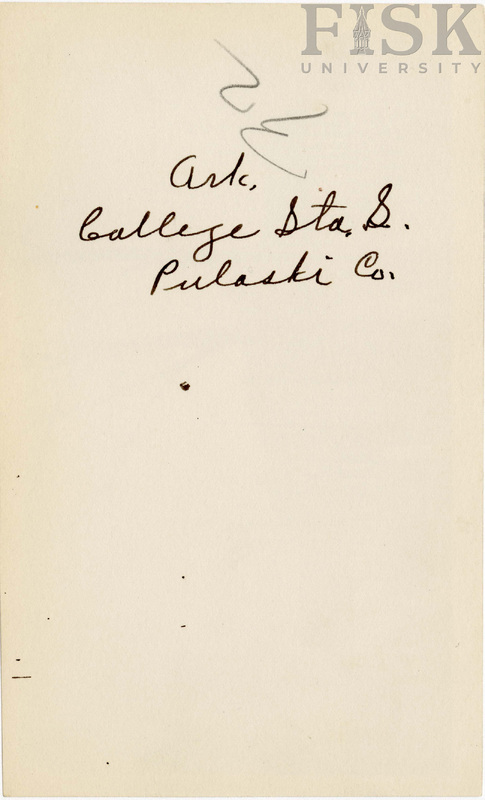 FISK
UNIVERSITY
Ark.
College Sta. S.
Pulaski Co.